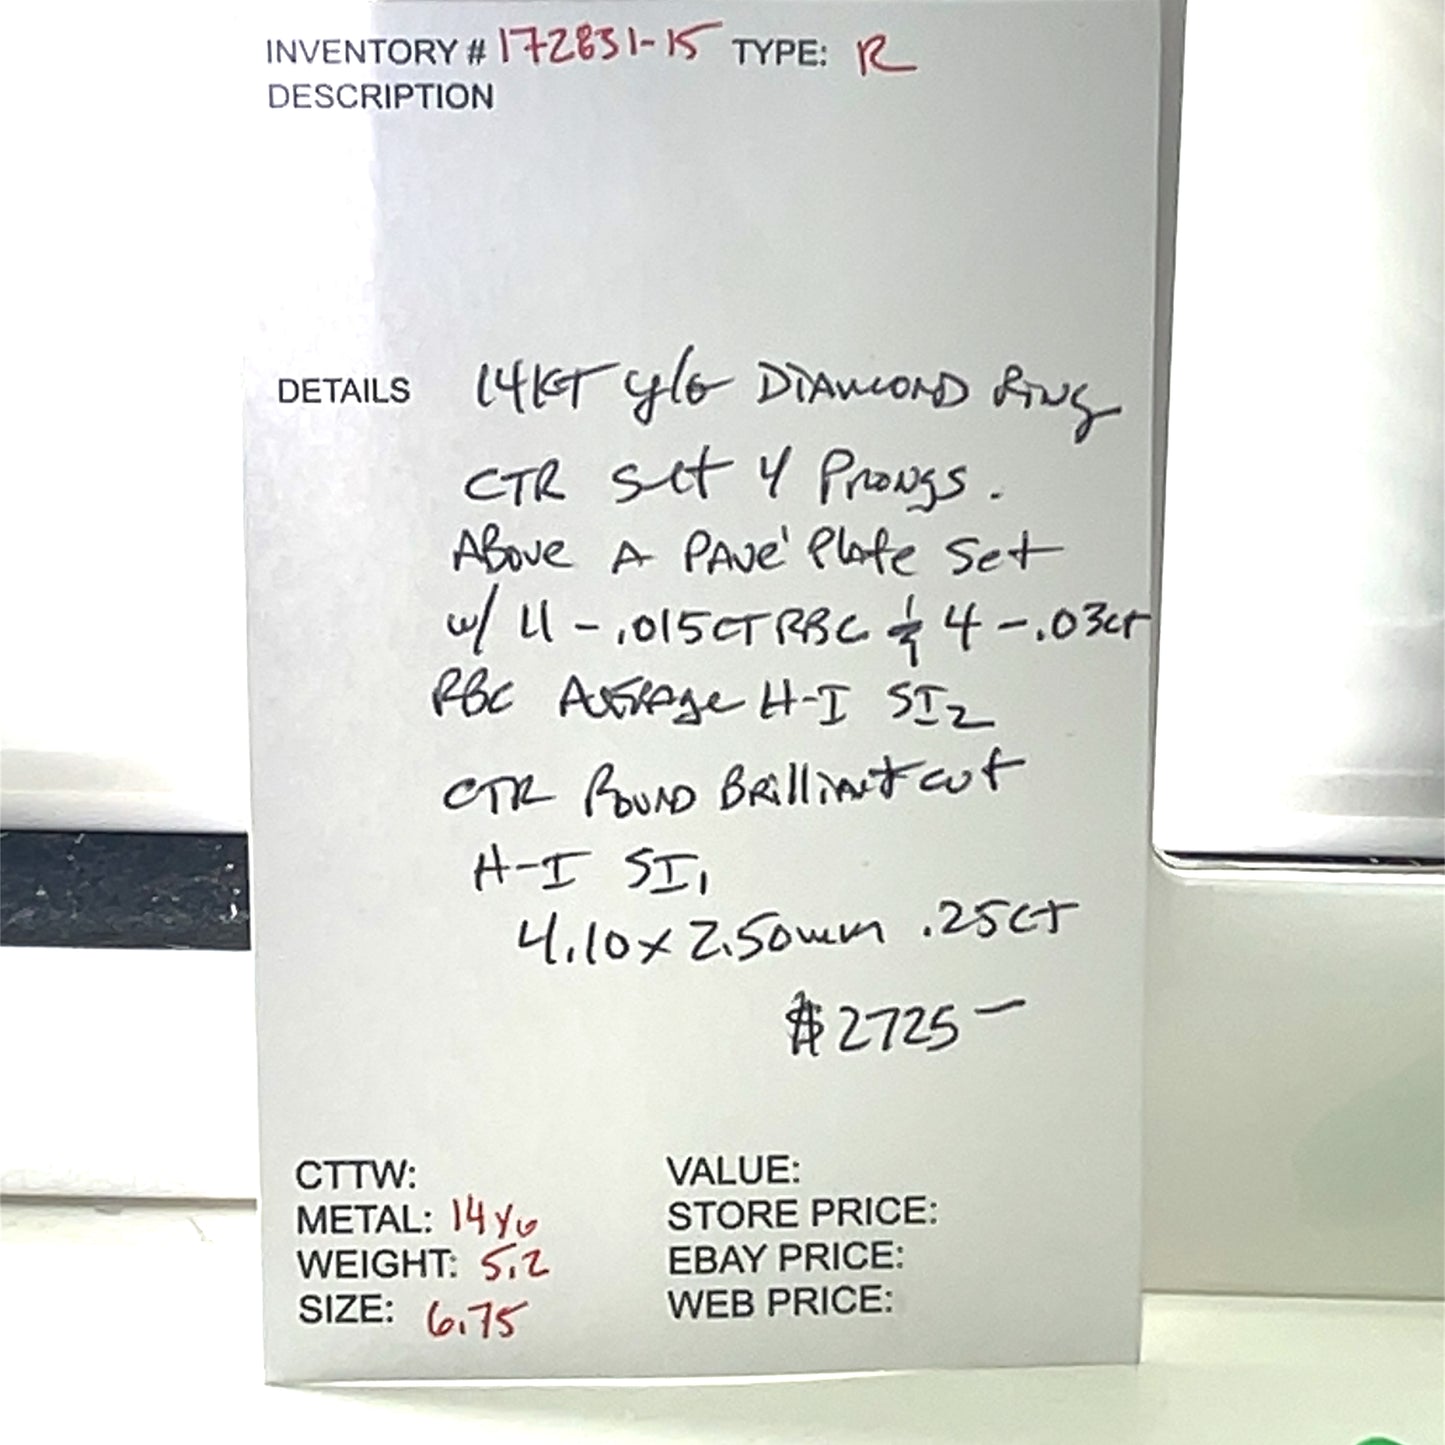 INVENTORY # 172831-15 TYPE: R
DESCRIPTION
DETAILS 14KT y/G DIAMOND RING
CTR Set 4 Prongs.
Above A PAVE' Plate Set
w/ 11 - .015CT RBC & 4 - .03ct
RBC AVERAge H-I SI2
CTR ROUND BRilliant cut
H-I SI1
4.10 x 2.50mm .25ct
$2725-
CTTW: VALUE:
METAL: 14YG STORE PRICE:
WEIGHT: 5.2 EBAY PRICE:
SIZE: 6.75 WEB PRICE: